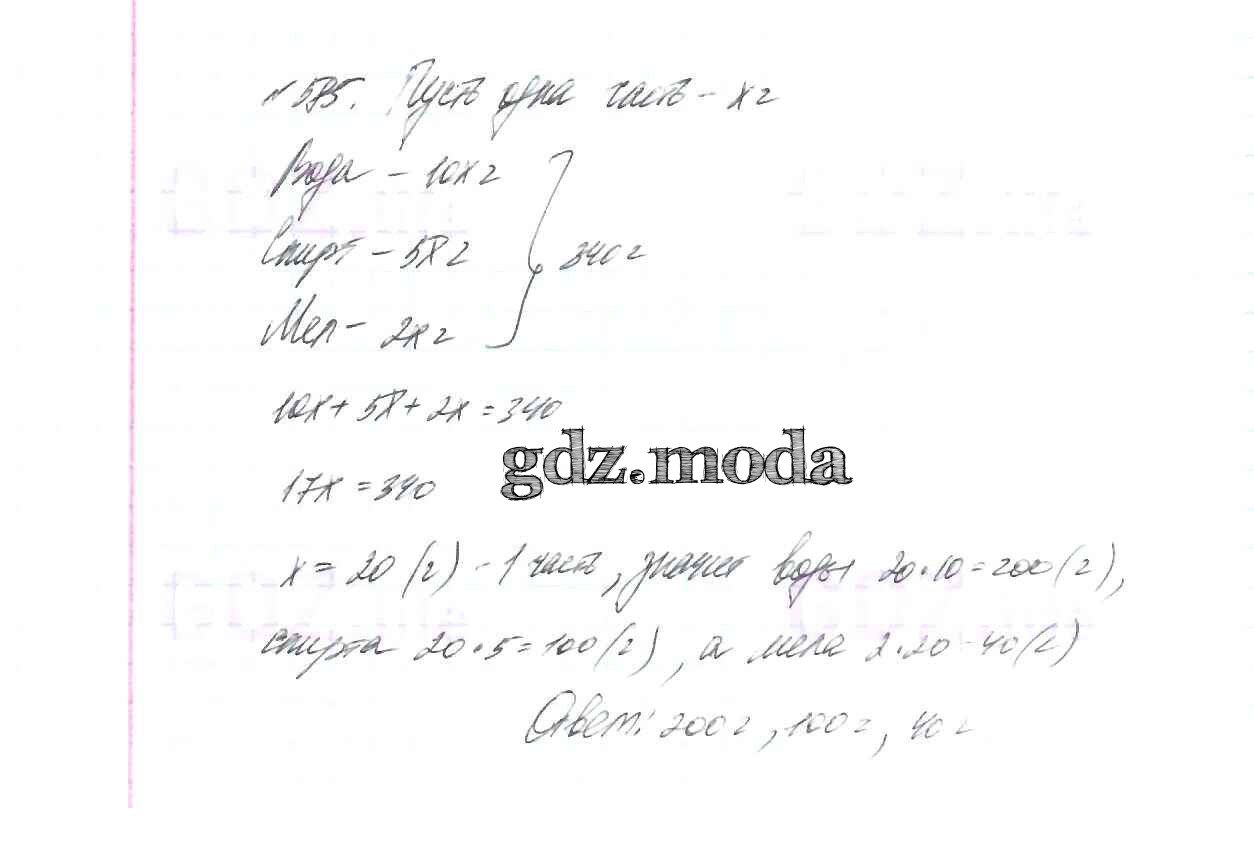 № 585. Пусть одна часть – х г
Вода – 10х г
Спирт – 5х г
340 г
Мел – 2х г
10х + 5х + 2х = 340
gdz.moda
17х = 340
х = 20 (г) – 1 часть, значит воды 20·10 = 200 (г),
спирта 20·5 = 100 (г), а мела 2·20 = 40 (г)
Ответ: 200 г, 100 г, 40 г